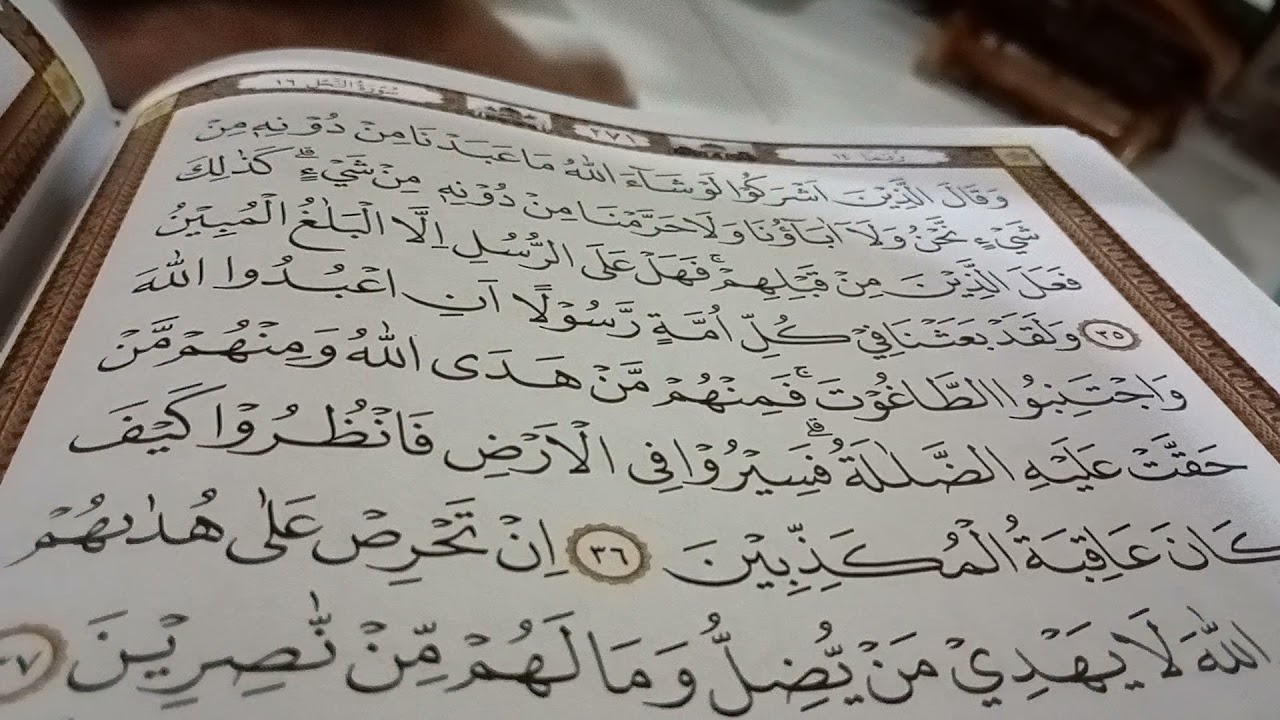 سورة النحل ١٦ ٢٧١ ربما ١٤
وَقَالَ الَّذِيْنَ اَشْرَكُوْا لَوْ شَاۤءَ اللّٰهُ مَا عَبَدْنَا مِنْ دُوْنِهٖ مِنْ
شَيْءٍ نَّحْنُ وَلَآ اٰبَاۤؤُنَا وَلَا حَرَّمْنَا مِنْ دُوْنِهٖ مِنْ شَيْءٍ ۗ كَذٰلِكَ
فَعَلَ الَّذِيْنَ مِنْ قَبْلِهِمْ ۚ فَهَلْ عَلَى الرُّسُلِ اِلَّا الْبَلٰغُ الْمُبِيْنُ
٣٥ وَلَقَدْ بَعَثْنَا فِيْ كُلِّ اُمَّةٍ رَّسُوْلًا اَنِ اعْبُدُوا اللّٰهَ
وَاجْتَنِبُوا الطَّاغُوْتَ ۚ فَمِنْهُمْ مَّنْ هَدَى اللّٰهُ وَمِنْهُمْ مَّنْ
حَقَّتْ عَلَيْهِ الضَّلٰلَةُ ۗ فَسِيْرُوْا فِى الْاَرْضِ فَانْظُرُوْا كَيْفَ
كَانَ عَاقِبَةُ الْمُكَذِّبِيْنَ ٣٦ اِنْ تَحْرِصْ عَلٰى هُدٰىهُمْ
اللّٰهَ لَا يَهْدِيْ مَنْ يُّضِلُّ وَمَا لَهُمْ مِّنْ نّٰصِرِيْنَ